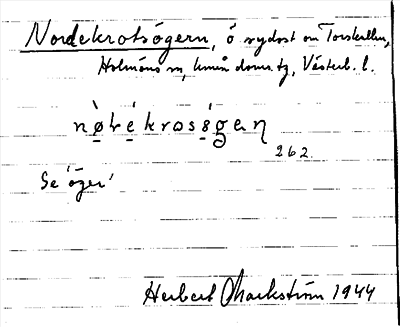 Nordekrotsögern, ö sydost om Torskullen,
Holmöns sn, Umeå doms. tg, Västerb. l.
nø̀ʈékrosśgeɳ
262.
Se 'öger'
Herbert Markström 1944